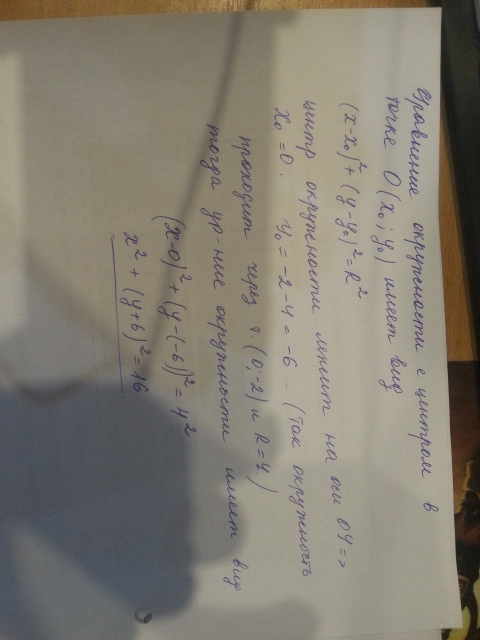 Уравнение окружности с центром в
точке O(x₀; y₀) имеет вид
(x-x₀)² + (y-y₀)² = R²
центр окружности лежит на оси OY =>
x₀ = 0. y₀ = -2-4 = -6. (так окружность
проходит через т. (0;-2) и R=4.)
тогда ур-ние окружности имеет вид
(x-0)² + (y-(-6))² = 4²
x² + (y+6)² = 16